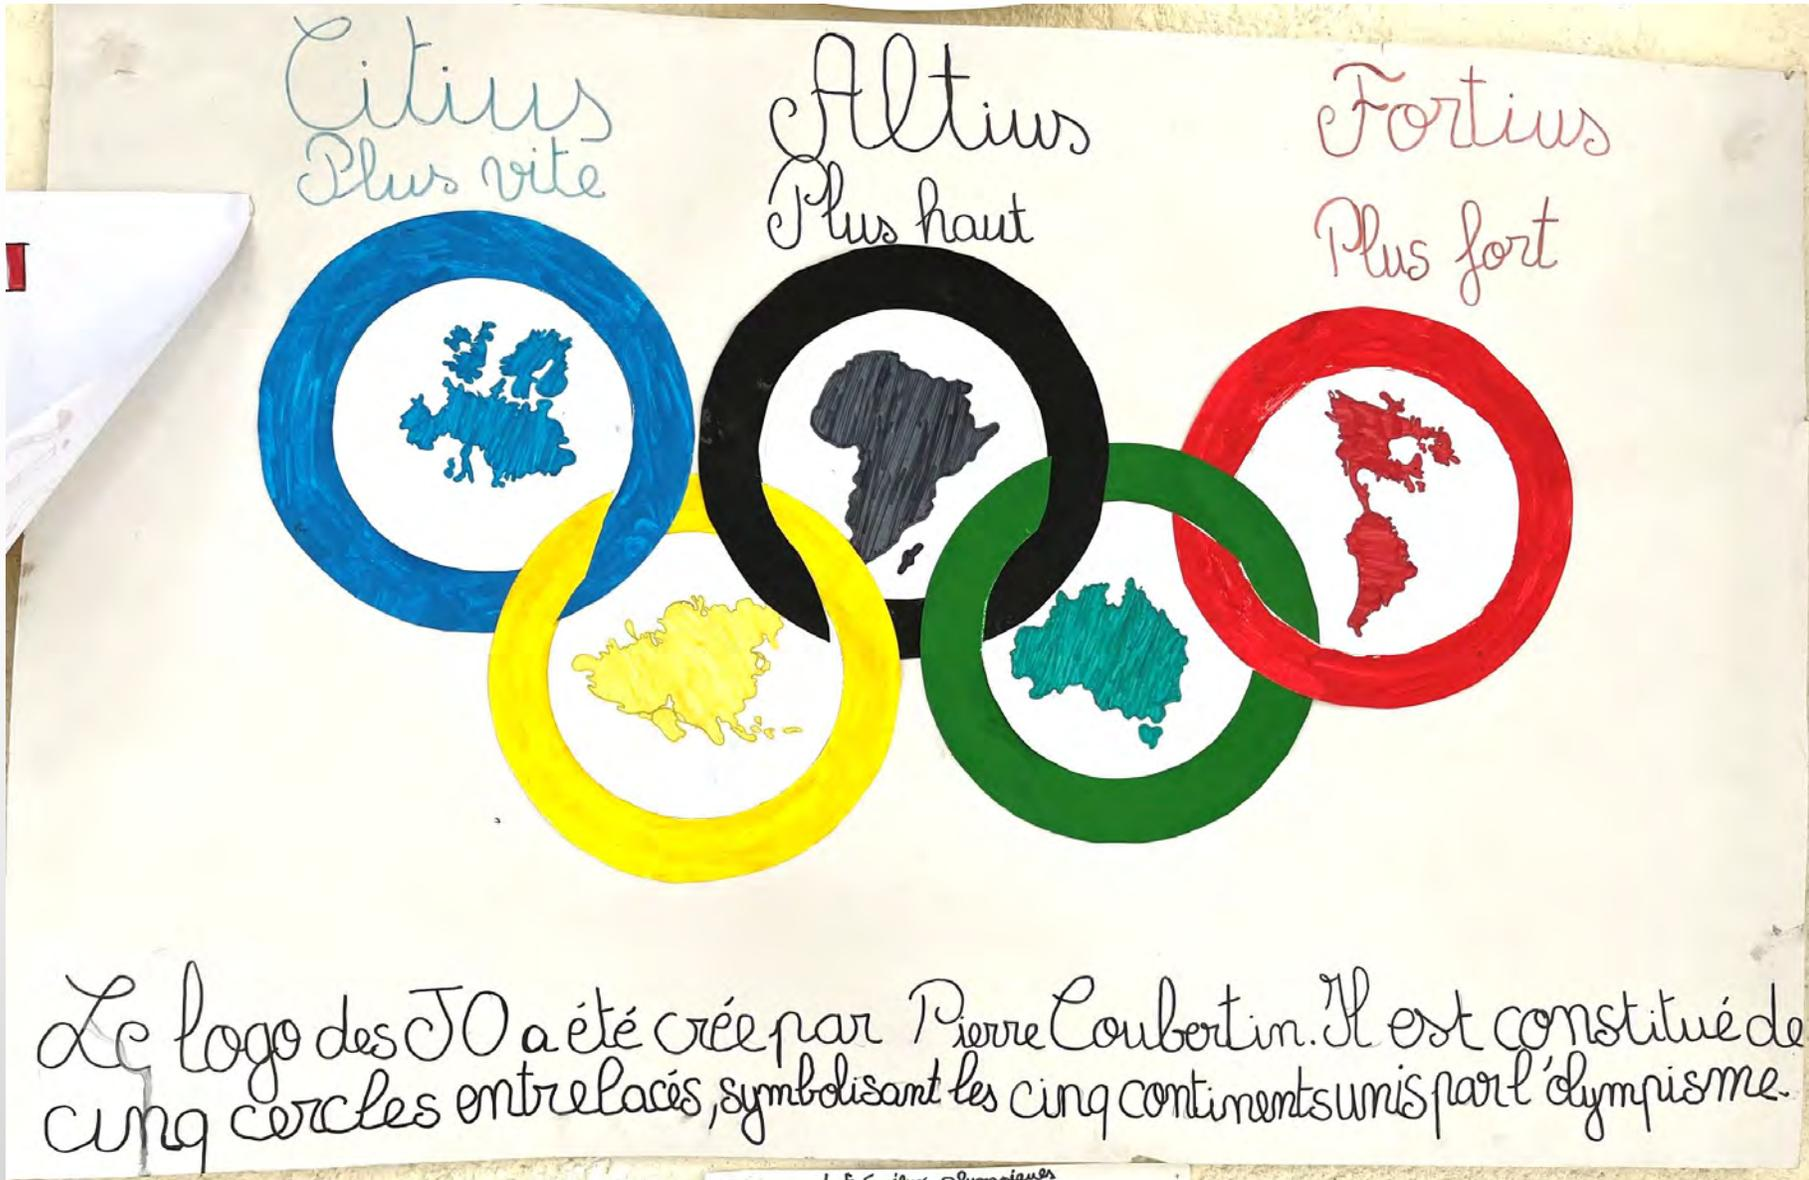 Citius
Plus vite
Altius
Plus haut
Fortius
Plus fort
Le logo des JO a été crée par Pierre Coubertin. Il est constitué de
cinq cercles entrelacés, symbolisant les cinq continents unis par l'olympisme.
olympiques